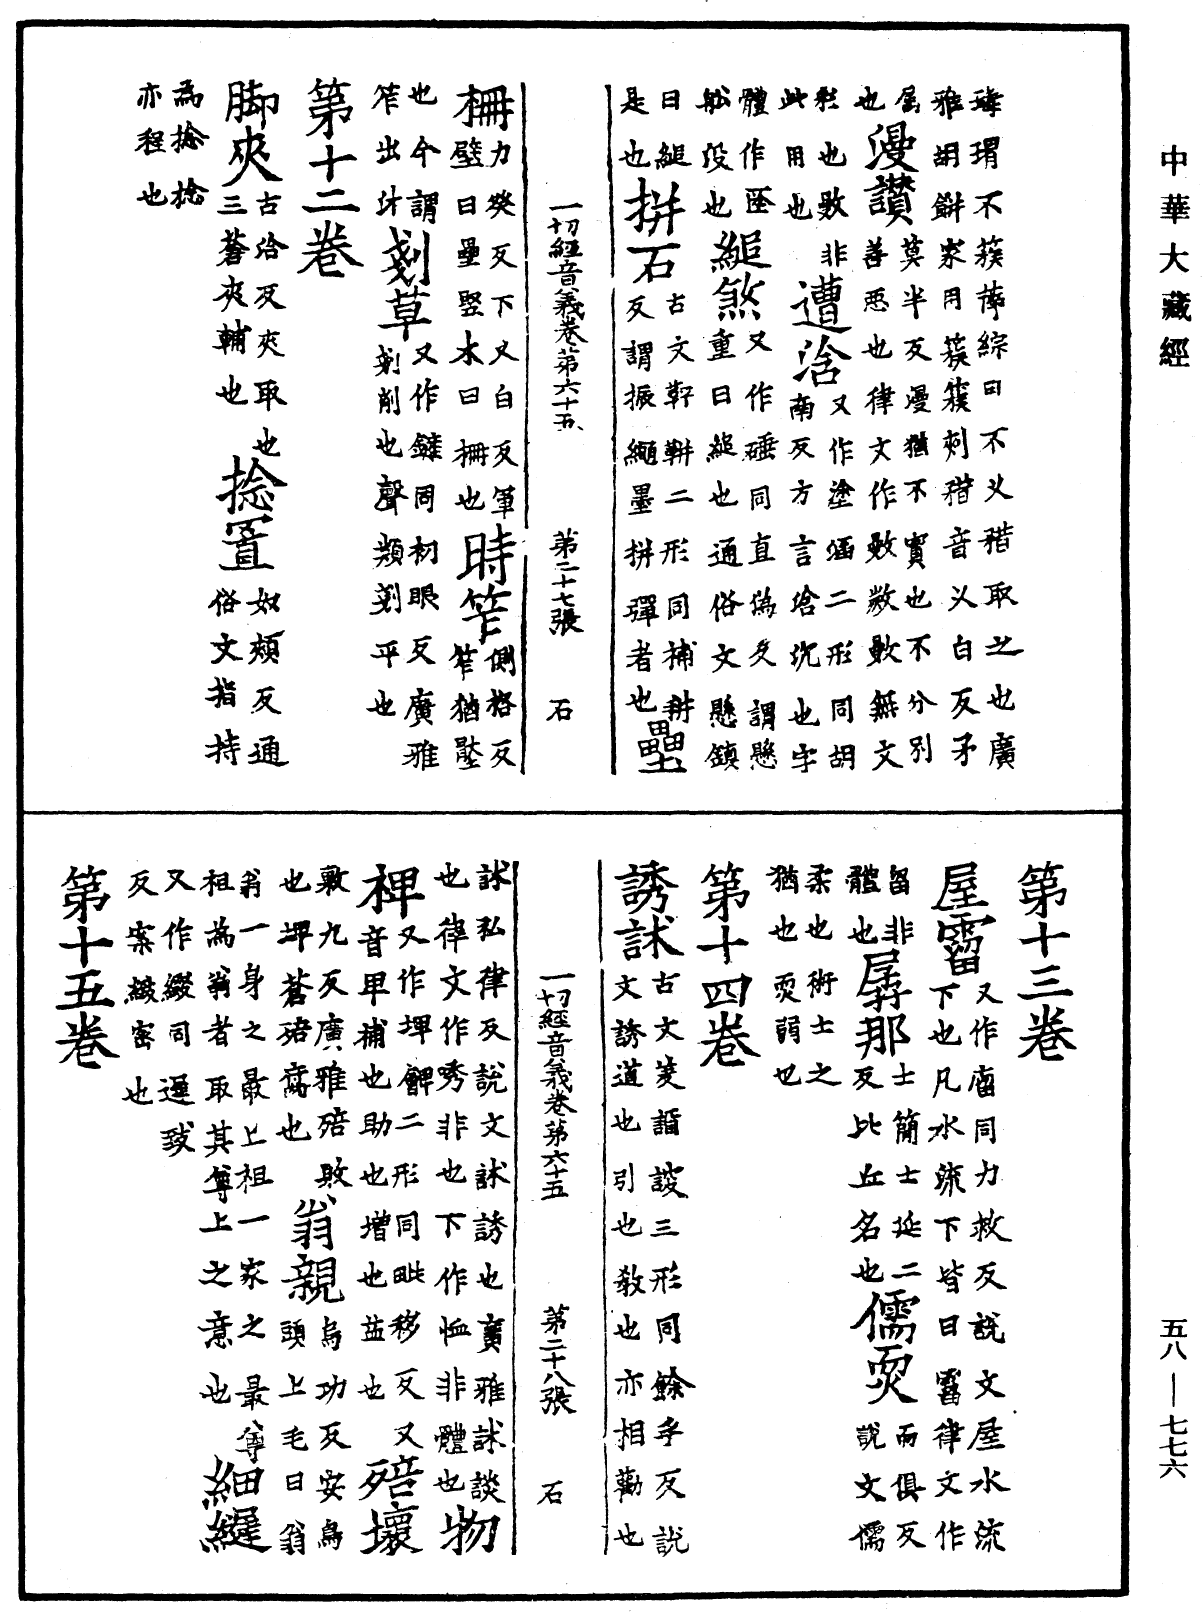 中華大藏經
瑋瑁不蔟薴綜曰不义矠取之也廣
雅胡鉼家用蔟蔟刺矠音乂白反矛
屬
也
漫讃
莫半反漫猶不實也不分別
善惡也律文作數數數無文
彩也數非
此用也
遭浛
又作塗涵二形同胡
南反方言浛沉也字
體作㴠
舩没也
縋煞
又作硾同直偽反謂懸
重曰縋也通俗文懸鎮
曰縋
是也
拼石
古文䩬軿二形同補耕
反謂振繩墨拼彈者也
壘
一切經音義卷第六十五
第二十七張
石
柵
力癸反下又白反軍
壁曰壘竪木曰柵也
時笮
側格反
笮猶壓
也今謂
笮出汁
剗草
又作鏟同初眼反廣雅
剗削也聲類剗平也
第十二卷
脚夾
古洽反夾取也
三蒼夾輔也
捻置
如頰反通
俗文指持
為捻捻
亦程也
第十三卷
屋霤
又作廇同力救反說文屋水流
下也凡水流下皆曰霤律文作
畱非
體也
孱那
士簡士延二
反比丘名也
儒耎
而俱反
說文儒
柔也術士之
猶也耎弱也
第十四卷
誘訹
古文羑誧䛻三形同餘手反說
文誘道也引也教也亦相勸也
一切經音義卷第六十五
第二十八張
石
訹私律反說文訹誘也廣雅訹談
也律文作㗀非也下作恤非體也
物
裨
又作埤䚜二形同毗移反又
音甲補也助也增也益也
殕壞
敷九反廣雅殕敗
也埤蒼殕腐也
翁親
烏功反安烏
也頭上毛曰翁
翁一身之最上祖一家之最尊
祖為翁者取其尊上之意也
細緻
又作綴同遲致
反案緻密也
第十五卷
五八—七七六